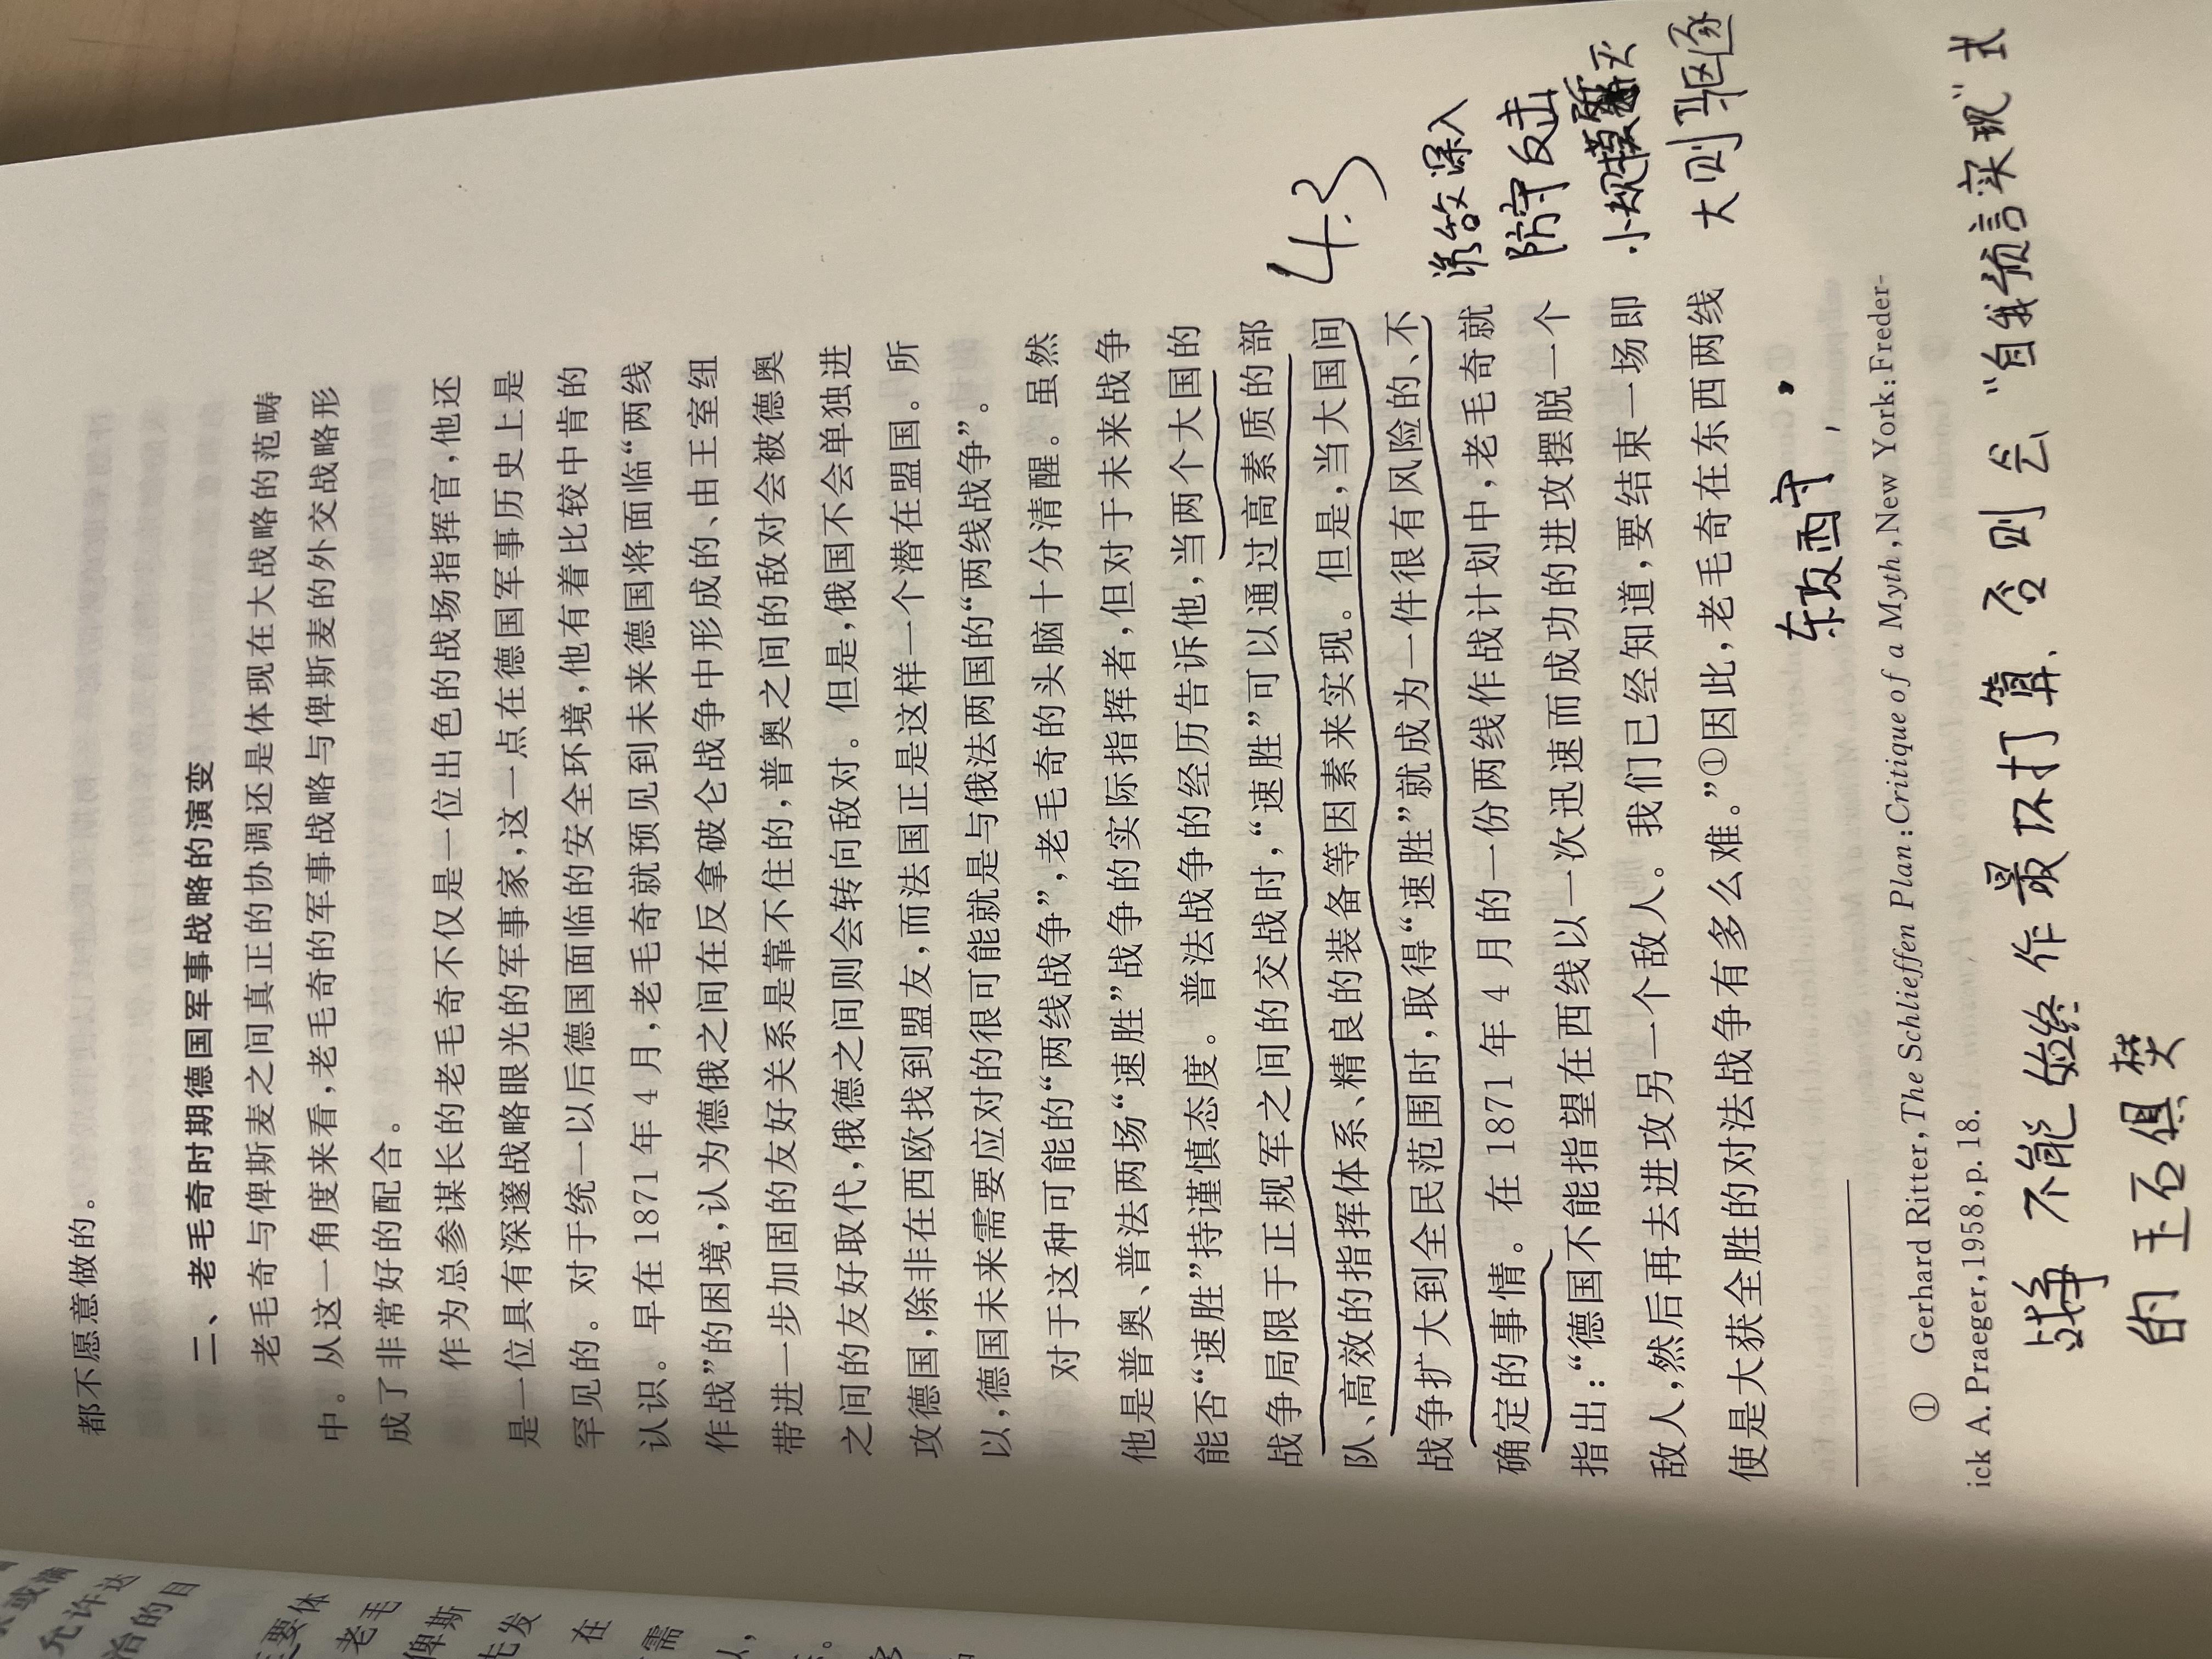 都不愿意做的。
二、老毛奇时期德国军事战略的演变
老毛奇与俾斯麦之间真正的协调还是体现在大战略的范畴
中。从这一角度来看,老毛奇的军事战略与俾斯麦的外交战略形
成了非常好的配合。
作为总参谋长的老毛奇不仅是一位出色的战场指挥官,他还
是一位具有深邃战略眼光的军事家,这一点在德国军事历史上是
罕见的。对于统一以后德国面临的安全环境,他有着比较中肯的
认识。早在 1871 年 4 月,老毛奇就预见到未来德国将面临“两线
作战”的困境,认为德俄之间在反拿破仑战争中形成的、由王室纽
带进一步加固的友好关系是靠不住的,普奥之间的敌对会被德奥
之间的友好取代,俄德之间则会转向敌对。但是,俄国不会单独进
攻德国,除非在西欧找到盟友,而法国正是这样一个潜在盟国。所
以,德国未来需要应对的很可能就是与俄法两国的“两线战争”。
对于这种可能的“两线战争”,老毛奇的头脑十分清醒。虽然
他是普奥、普法两场“速胜”战争的实际指挥者,但对于未来战争
能否“速胜”持谨慎态度。普法战争的经历告诉他,当两个大国的
战争局限于正规军之间的交战时,“速胜”可以通过高素质的部
队、高效的指挥体系、精良的装备等因素来实现。但是,当大国间
战争扩大到全民范围时,取得“速胜”就成为一件很有风险的、不
确定的事情。在 1871 年 4 月的一份两线作战计划中,老毛奇就
指出:“德国不能指望在西线以一次迅速而成功的进攻摆脱一个
敌人,然后再去进攻另一个敌人。我们已经知道,要结束一场即
使是大获全胜的对法战争有多么难。”①因此,老毛奇在东西两线
4.3
诱敌深入
防守反击
小规模歼灭
大则驱逐
东攻西守,
① Gerhard Ritter, The Schlieffen Plan: Critique of a Myth, New York: Freder-
ick A. Praeger, 1958, p. 18.
战争不能始终作最坏打算、否则会“自我预言实现”式
的玉石俱焚
允许达
治的目
主要体
老毛
俾斯
先发
在
需
以,